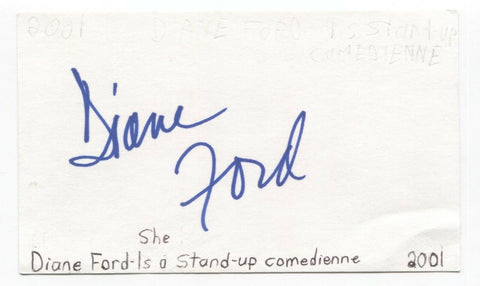 2001 DIANE FORD-Is Stand-up
COMEDIENNE
Diane
Ford
She
Diane Ford-Is a Stand-up comedienne 2001